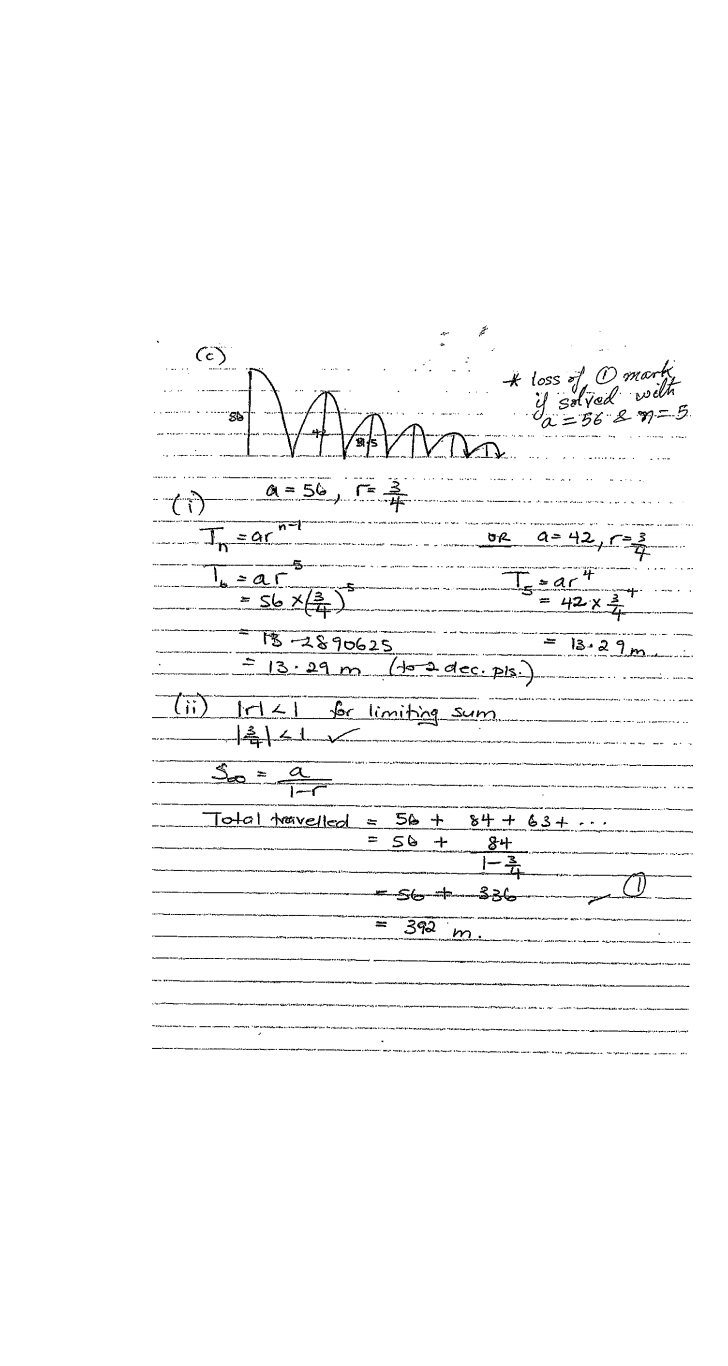 (c)
* loss of ① mark
if solved with
a = 56 & n = 5
56
42
31.5
(i) a = 56, r = 3/4
Tn = ar^(n-1)
OR a = 42, r = 3/4
T6 = ar^5
= 56 × (3/4)^5
= 13.2890625
= 13.29 m (to 2 dec. pls.)
T5 = ar^4
= 42 × 3/4^4
= 13.29 m.
(ii) |r| < 1 for limiting sum
|3/4| < 1 ✓
S∞ = a/(1-r)
Total travelled = 56 + 84 + 63 + ...
= 56 + 84/(1 - 3/4)
= 56 + 336
①
= 392 m.